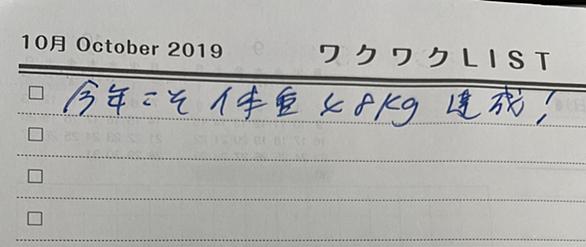 10月 October 2019 ワクワクLIST
今年こそ 体重 48kg 達成!